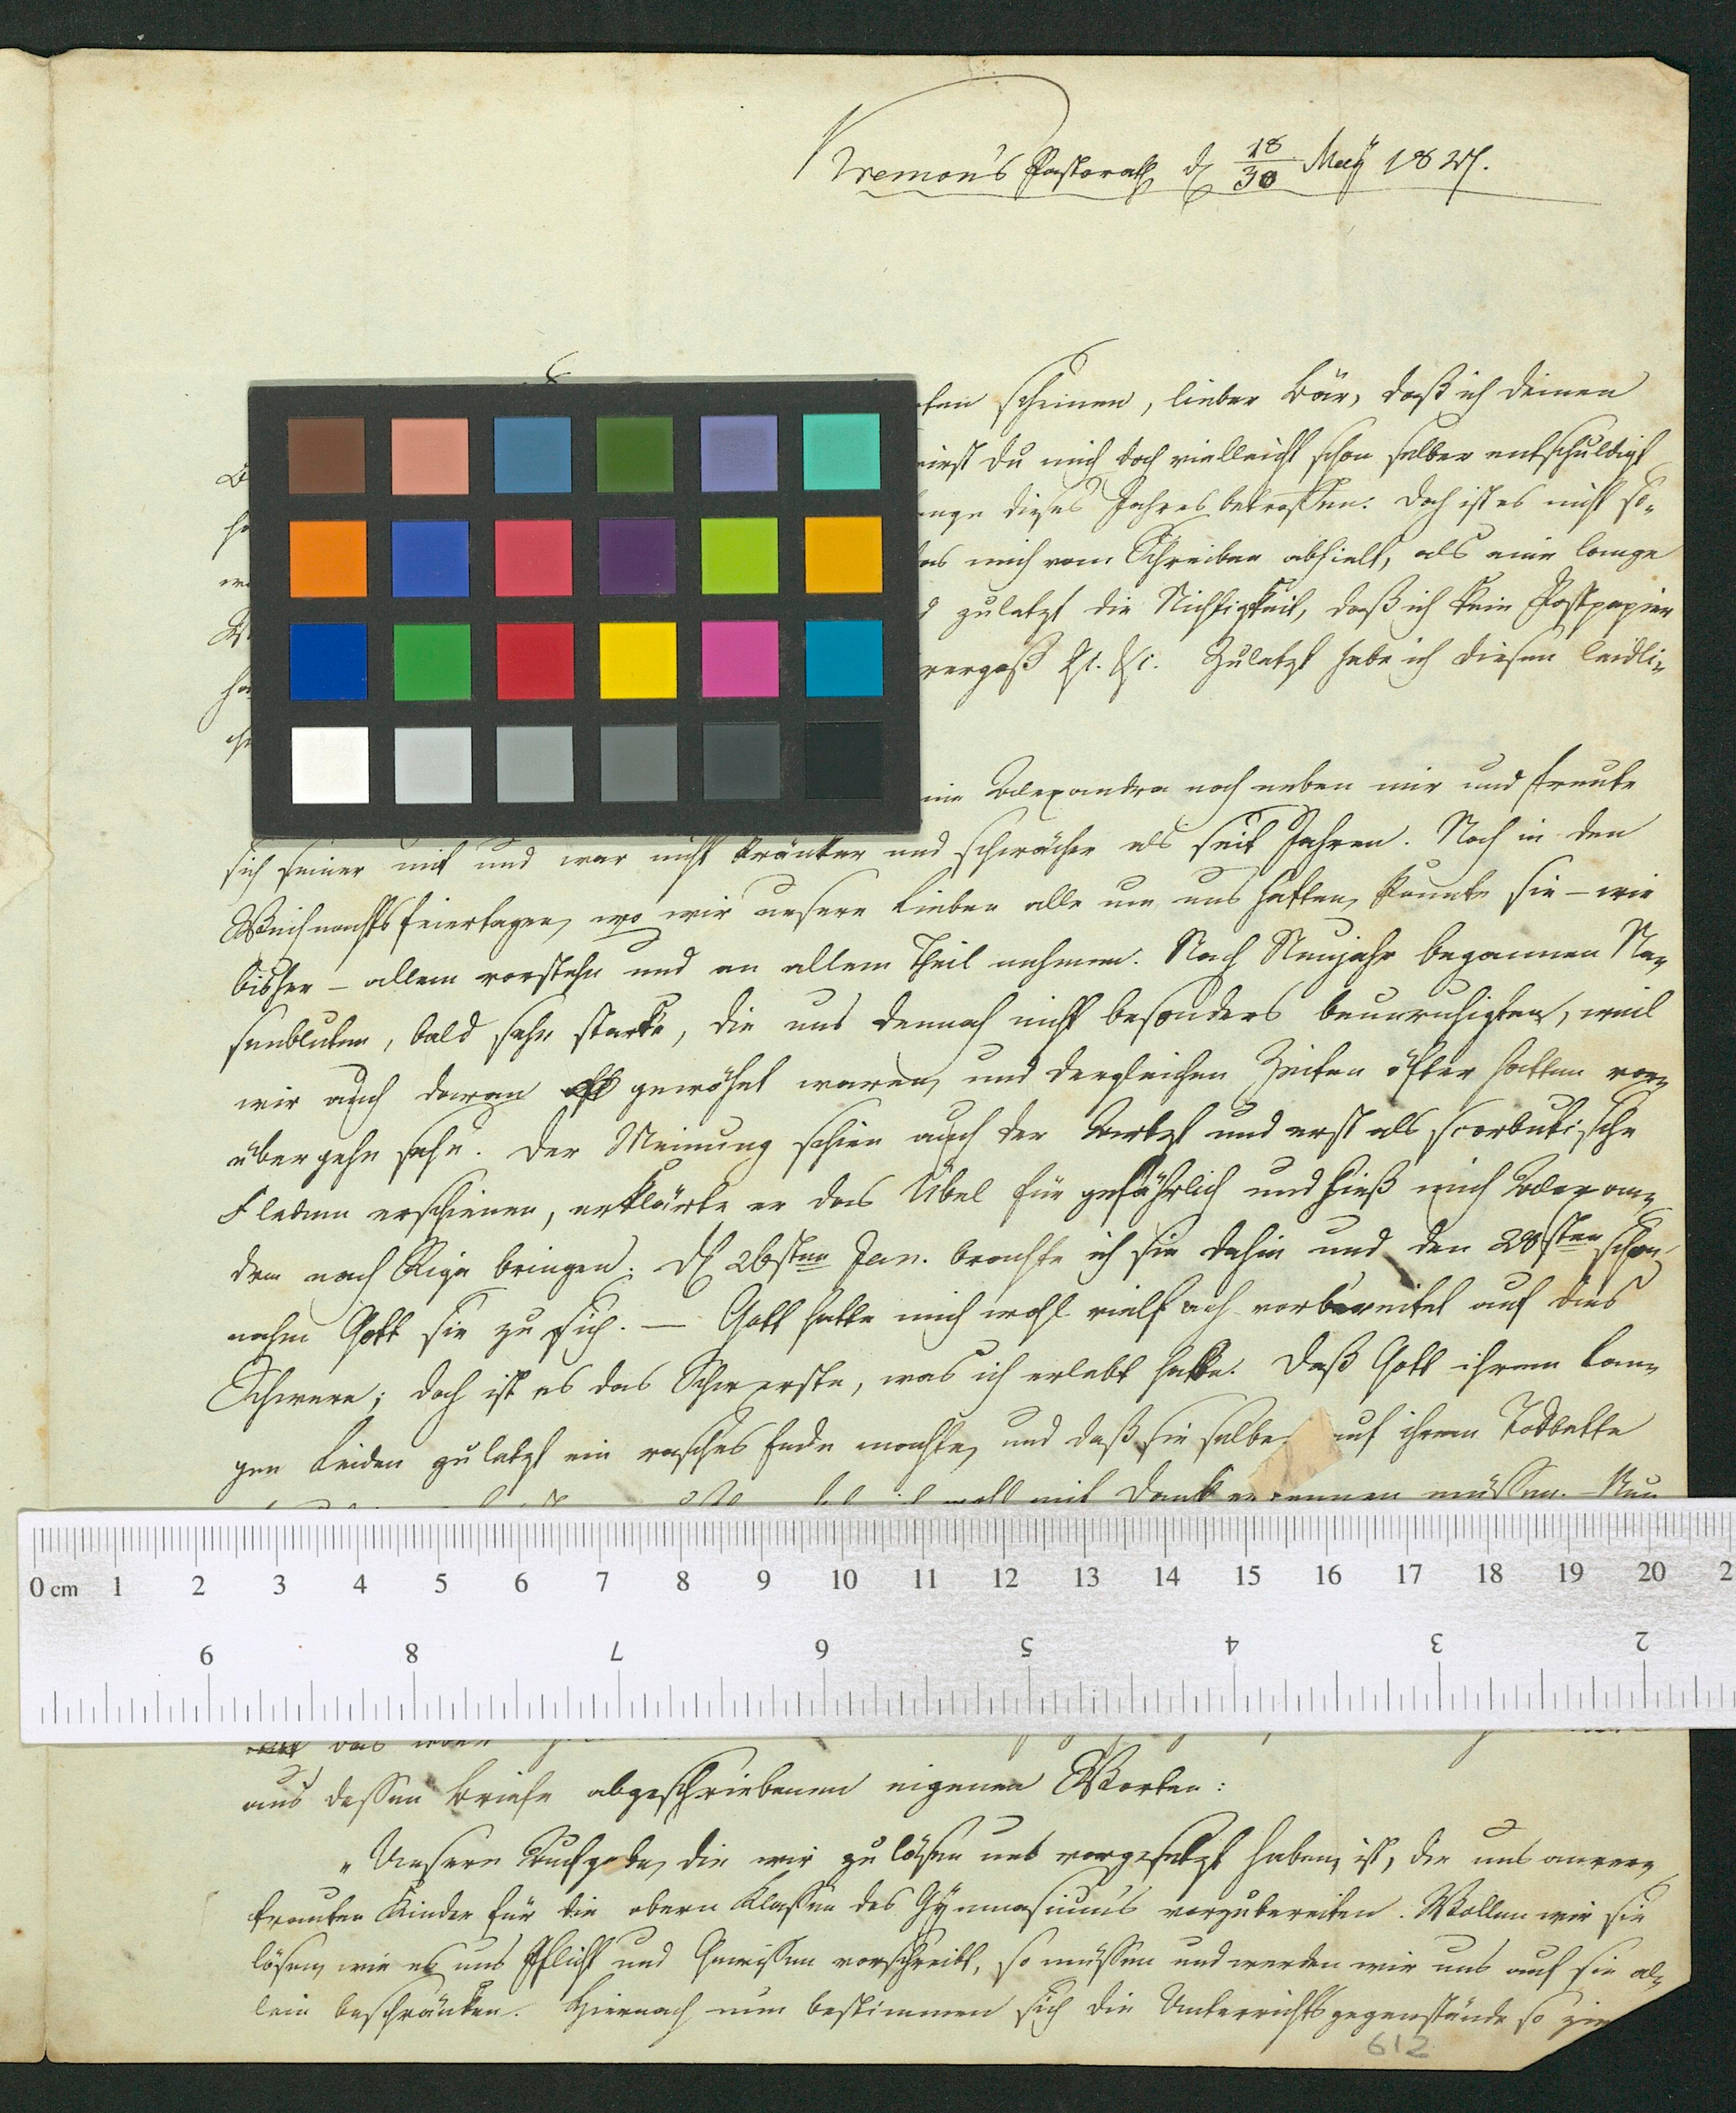 Kremon's Pastorath d 18/30 May 1827.
scheinen, lieber Bär, daß ich Deinen
wirst Du mich doch vielleicht schon selber entschuldigt
dieses Jahres betroffen. Doch ist es nicht so-
mich vom Schreiben abhielt, als eine lange
zuletzt die Nichtigkeit, daß ich kein Postpapier
vergaß &c. &c. Zuletzt habe ich diesen leidli-
Alexandra noch neben mir und freute
sich seiner mit und war nicht kränker und schwächer als seit Jahren. Noch in den
Weihnachtsfeiertagen, wo wir unsere Lieben alle um uns hatten, konnte sie – wie
bisher – allem vorstehn und an allem Theil nehmen. Nach Neujahr begannen Na-
senbluten, bald sehr starke, die uns dennoch nicht besonders beunruhigten, weil
wir auch daran gewöhnt waren, und dergleichen Zeiten öfter hatten vor-
übergehn sehn. Der Meinung schien auch der Artzt und erst als scorbutische
Flecken erschienen, erklärte er das Übel für gefährlich und hieß mich Alexan-
dra nach Riga bringen. D 26sten Jan. brachte ich sie dahin und den 28sten schon
nahm Gott sie zu sich. — Gott hatte mich wohl vielfach vorbereitet auf dies
Schwere; doch ist es das Schwerste, was ich erlebt habe. Daß Gott ihrem lan-
gen Leiden zuletzt ein rasches Ende machte, und daß sie selber auf ihrem Todbette
wohl mit Dank erkennen müssen. Nun
das
aus dessen Briefe abgeschriebenen eigenen Worten:
„Unsere Aufgabe, die wir zu lösen uns vorgesetzt haben, ist, die uns anver-
trauten Kinder für die obern Klassen des Gymnasiums vorzubereiten. Wollen wir sie
lösen, wie es uns Pflicht und Gewissen vorschreibt, so müssen und werden wir uns auf sie al-
lein beschränken. Hiernach nun bestimmen sich die Unterrichtsgegenstände so
612
0 cm 1 2 3 4 5 6 7 8 9 10 11 12 13 14 15 16 17 18 19 20 2
9 8 7 6 5 4 3 2